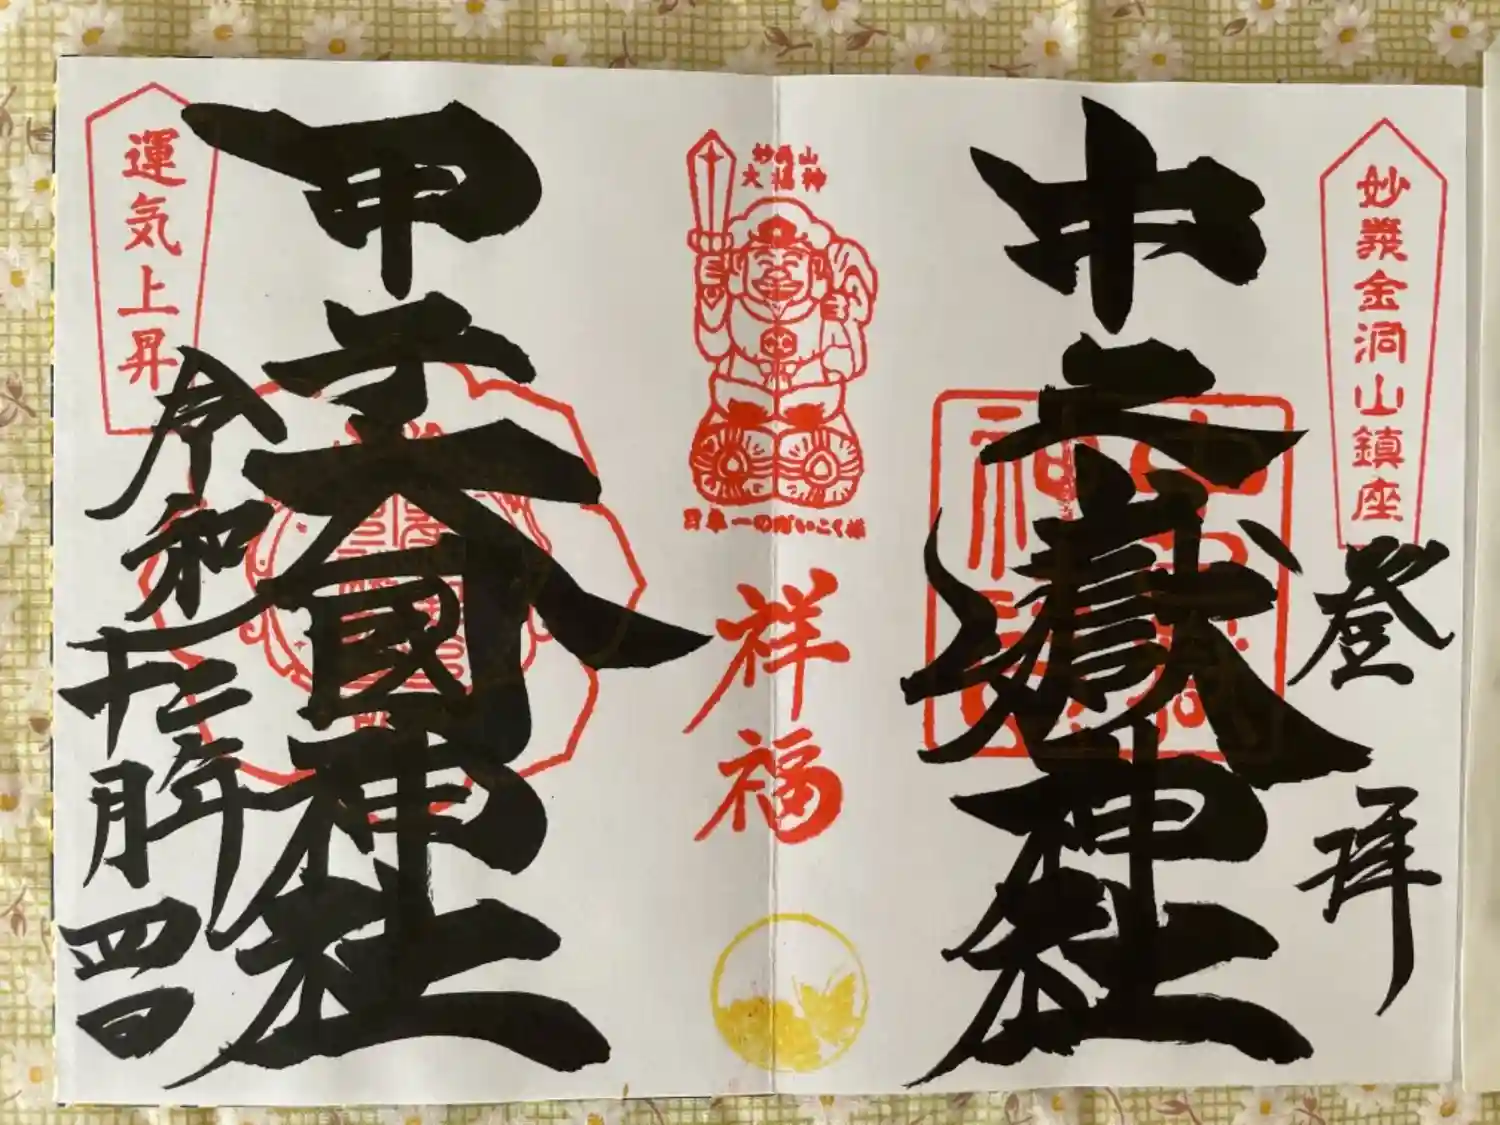 妙義金洞山鎮座
登拝
中之嶽神社
妙義山
大福神
日本一のだいこく様
祥福
甲子大國神社
運気上昇
令和二年
十月四日